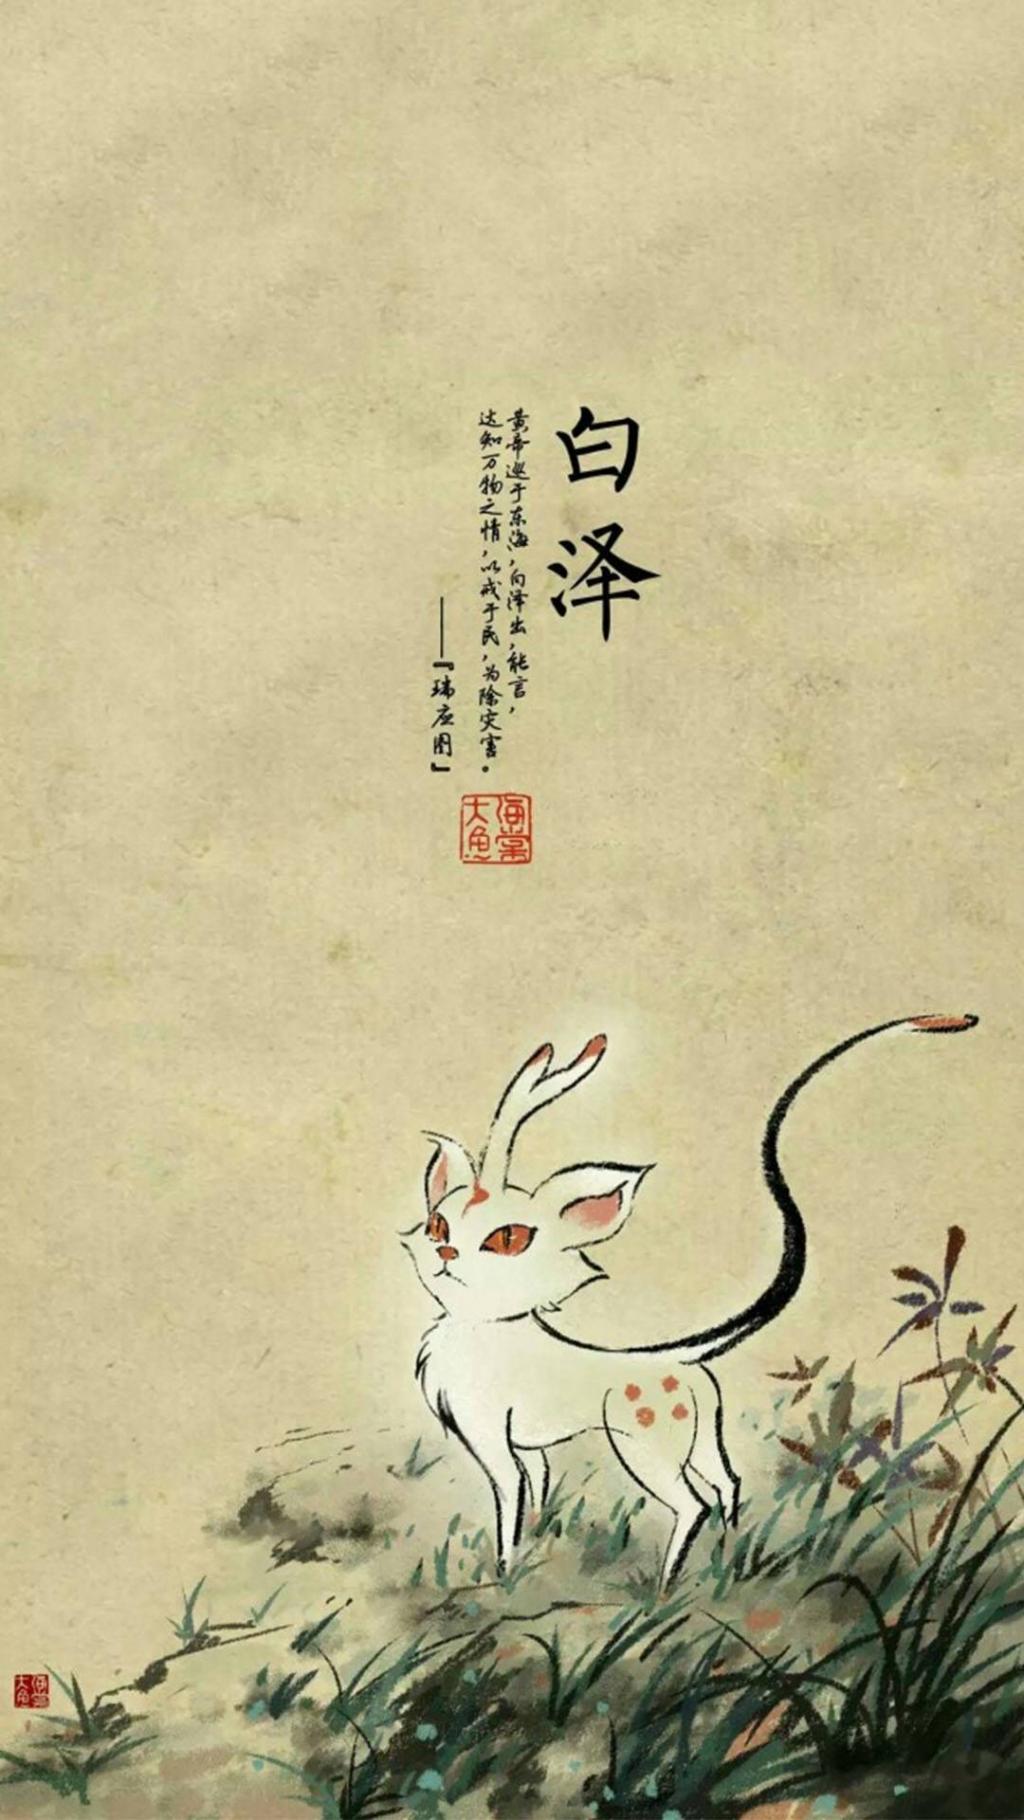 白泽
黄帝巡于东海,白泽出,能言,
达知万物之情,以戒于民,为除灾害。
——『瑞应图』
大鱼海棠
大鱼海棠